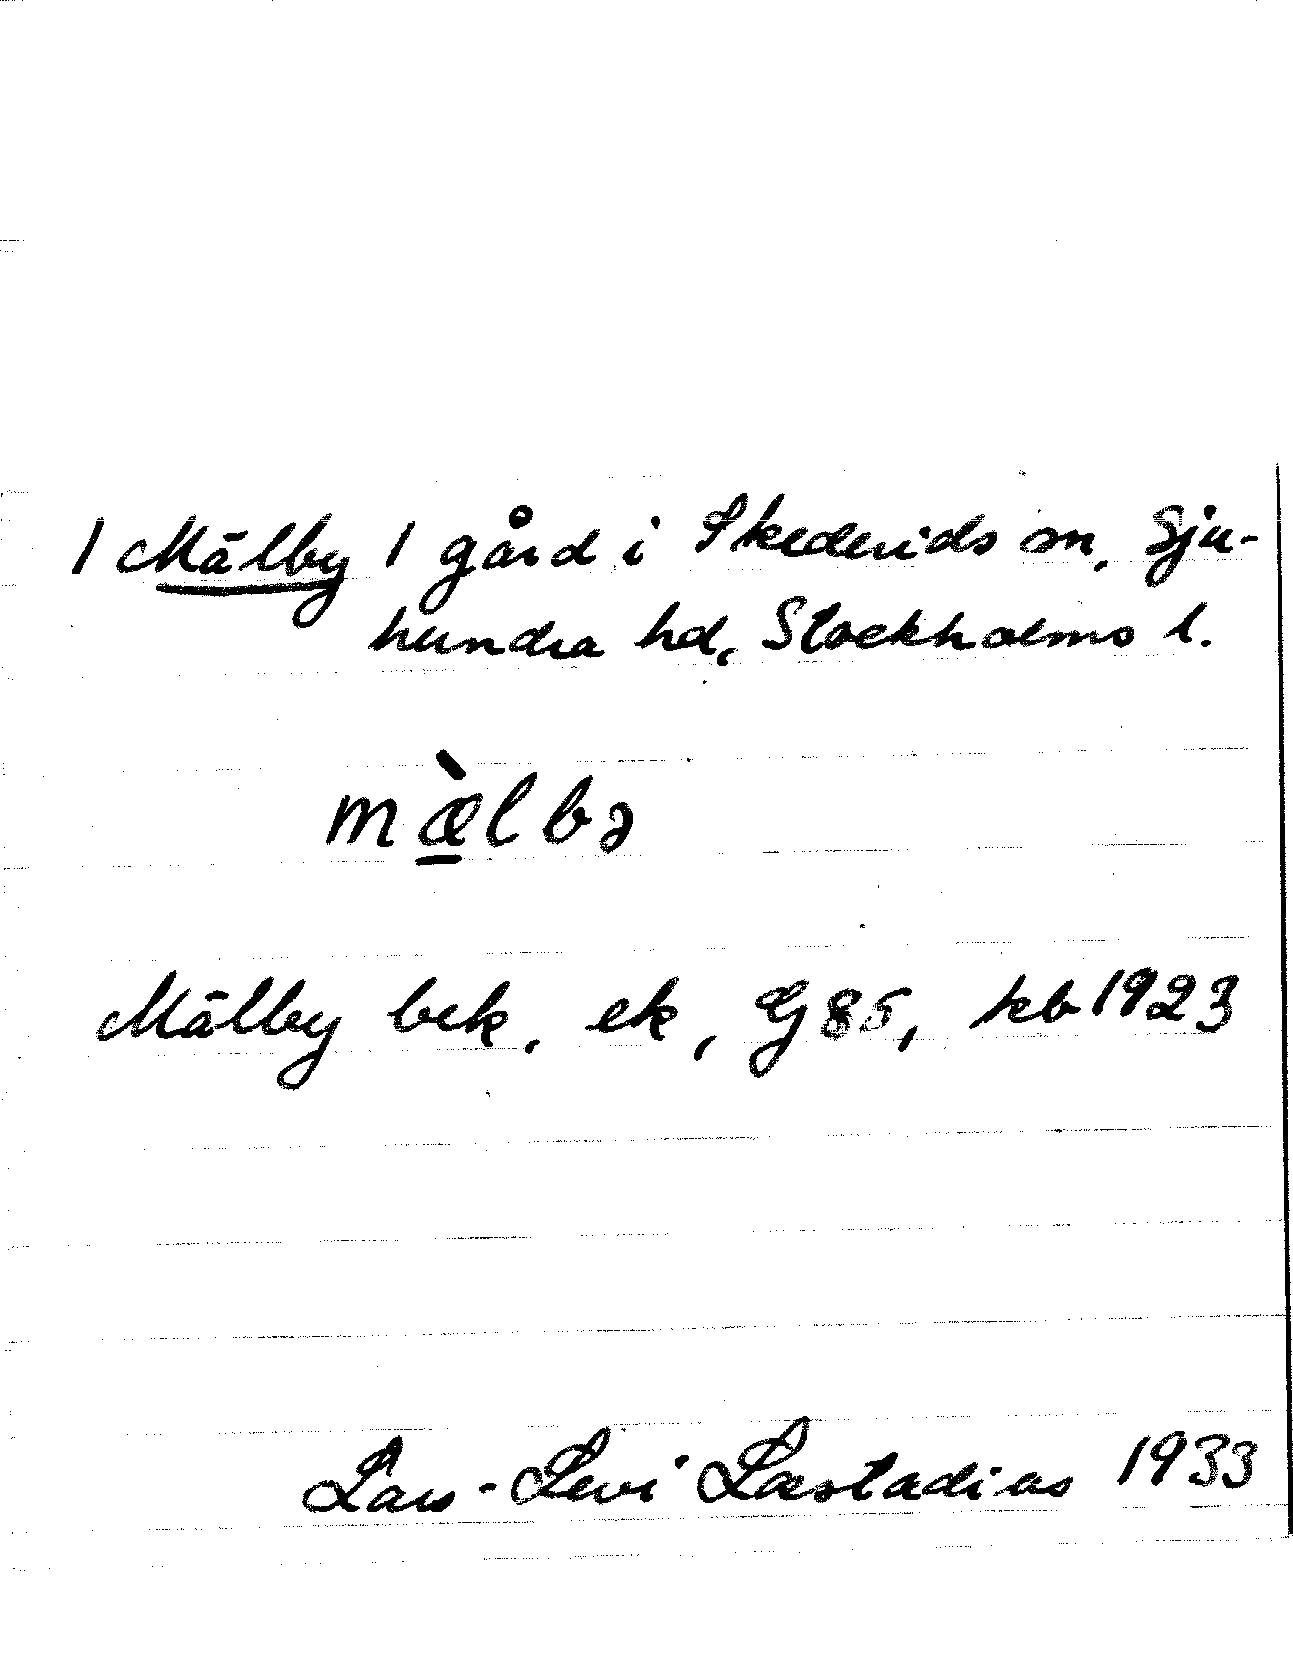 1 Mälby 1 gård i Skederids sn, Sju-
hundra hd, Stockholms l.
mæ̲̀lbə
Mälby bek, ek, G85, kb 1923
Lars-Levi Læstadius 1933